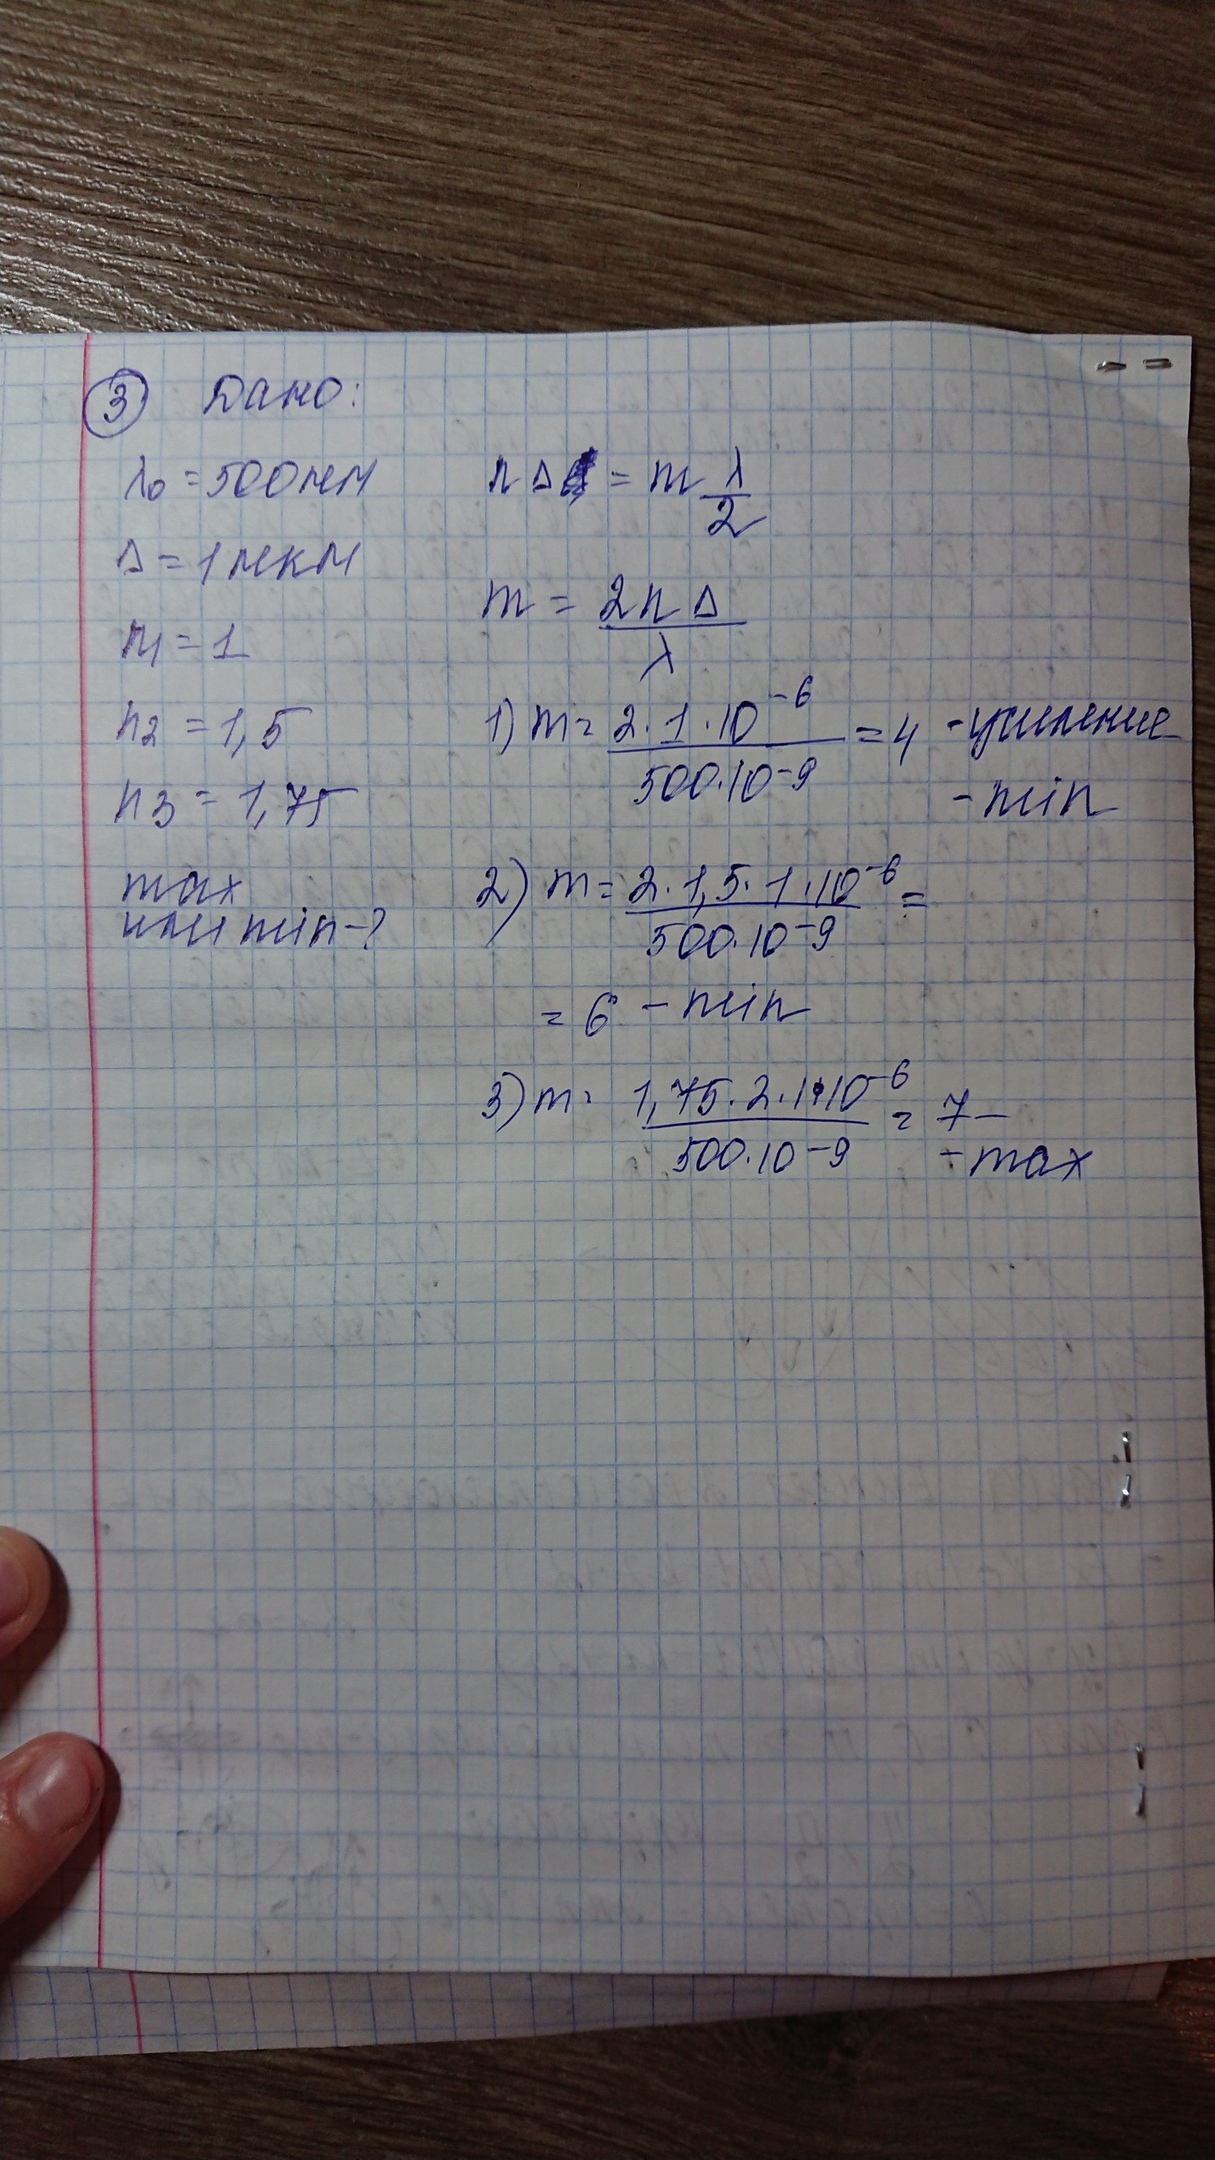 3 Дано:
λ₀ = 500 нм
Δ = 1 мкм
n₁ = 1
n₂ = 1,5
n₃ = 1,75
max
или min - ?
nΔ = m λ/2
m = 2nΔ/λ
1) m = 2·1·10⁻⁶/500·10⁻⁹ = 4 - усиление
- min
2) m = 2·1,5·1·10⁻⁶/500·10⁻⁹ =
= 6 - min
3) m = 1,75·2·1·10⁻⁶/500·10⁻⁹ = 7 -
- max